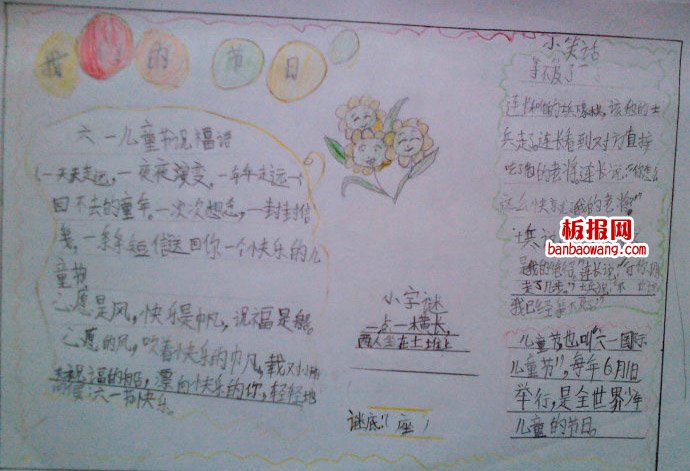 我们的节日
六一儿童节祝福语
一天天走远,一夜夜演变,一年年走远一
回不去的童年,一次次想念,一封封信
笺,一条条短信送回你一个快乐的儿
童节
心愿是风,快乐是帆,祝福是船,
心愿的风,吹着快乐的帆,载
祝福的船,漂向快乐的你,轻轻地
六一节快乐。
小字谜
一点一横长,
两人坐在土堆上
谜底:(座)
小笑话
等不及了
连长和士兵下象棋,该他的士
兵走,连长看到对方直接
吃了自己的老将,连长说:“你怎么
这么快就吃我的老将?”
士兵
是我的 连长说:“
走了几步。”士兵说:“不
我已经等不及了。”
儿童节也叫“六一国际
儿童节”,每年6月1日
举行,是全世界少年
儿童的节日。
板报网
banbaowang.com